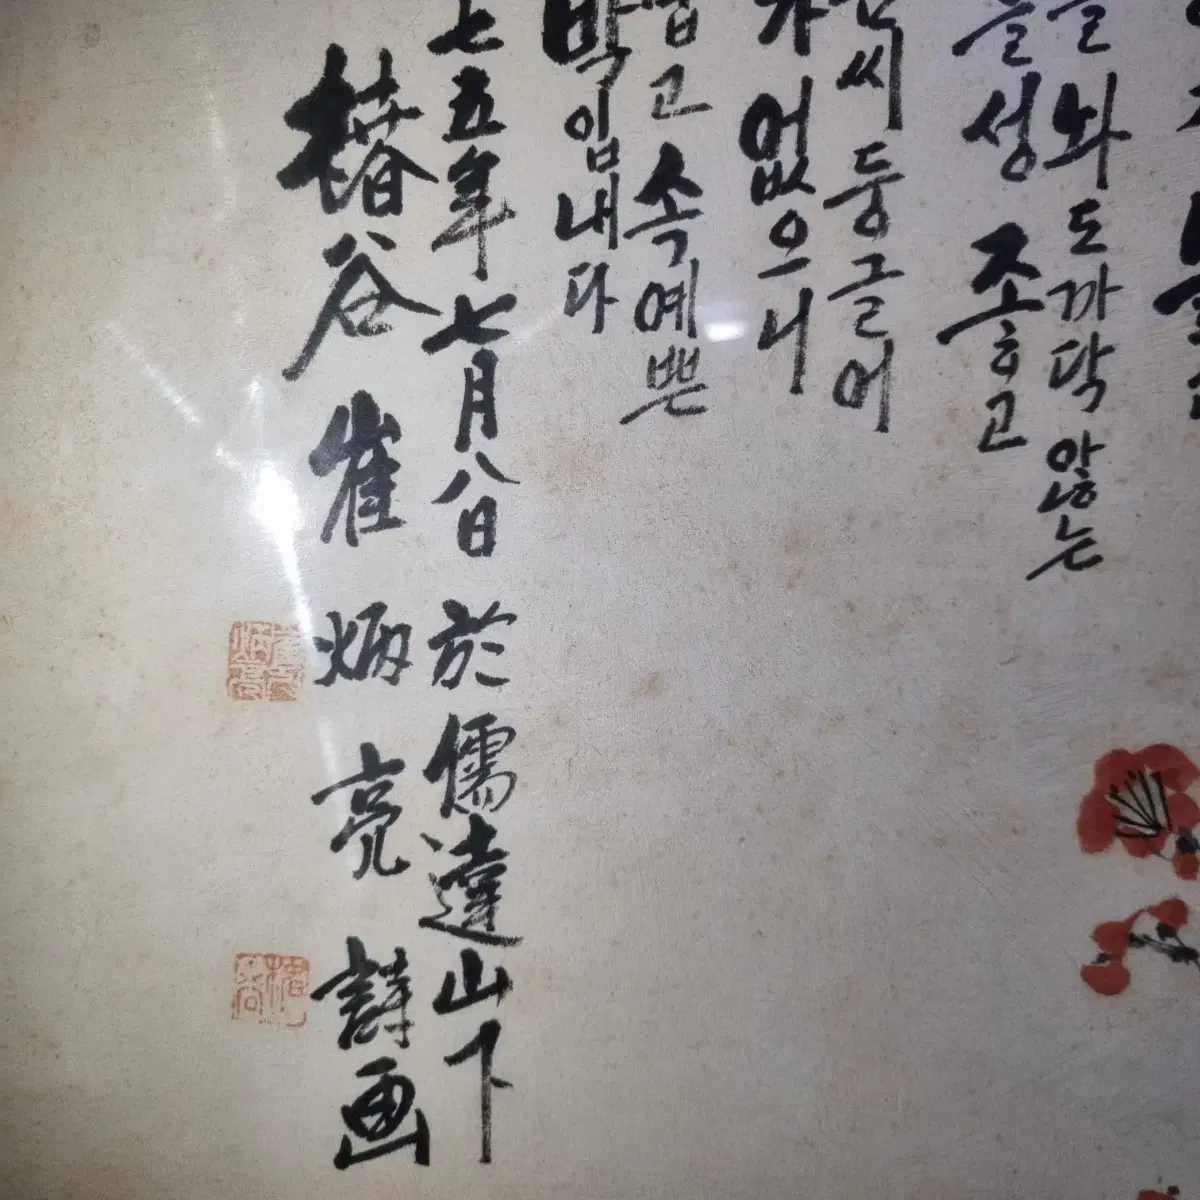 을놔도까닥않는
를성좋고
씨둥글어
가없으니
겁고속예쁜
박입내다
七五年七月八日 於儒達山下
椿谷 崔炳亮 詩画